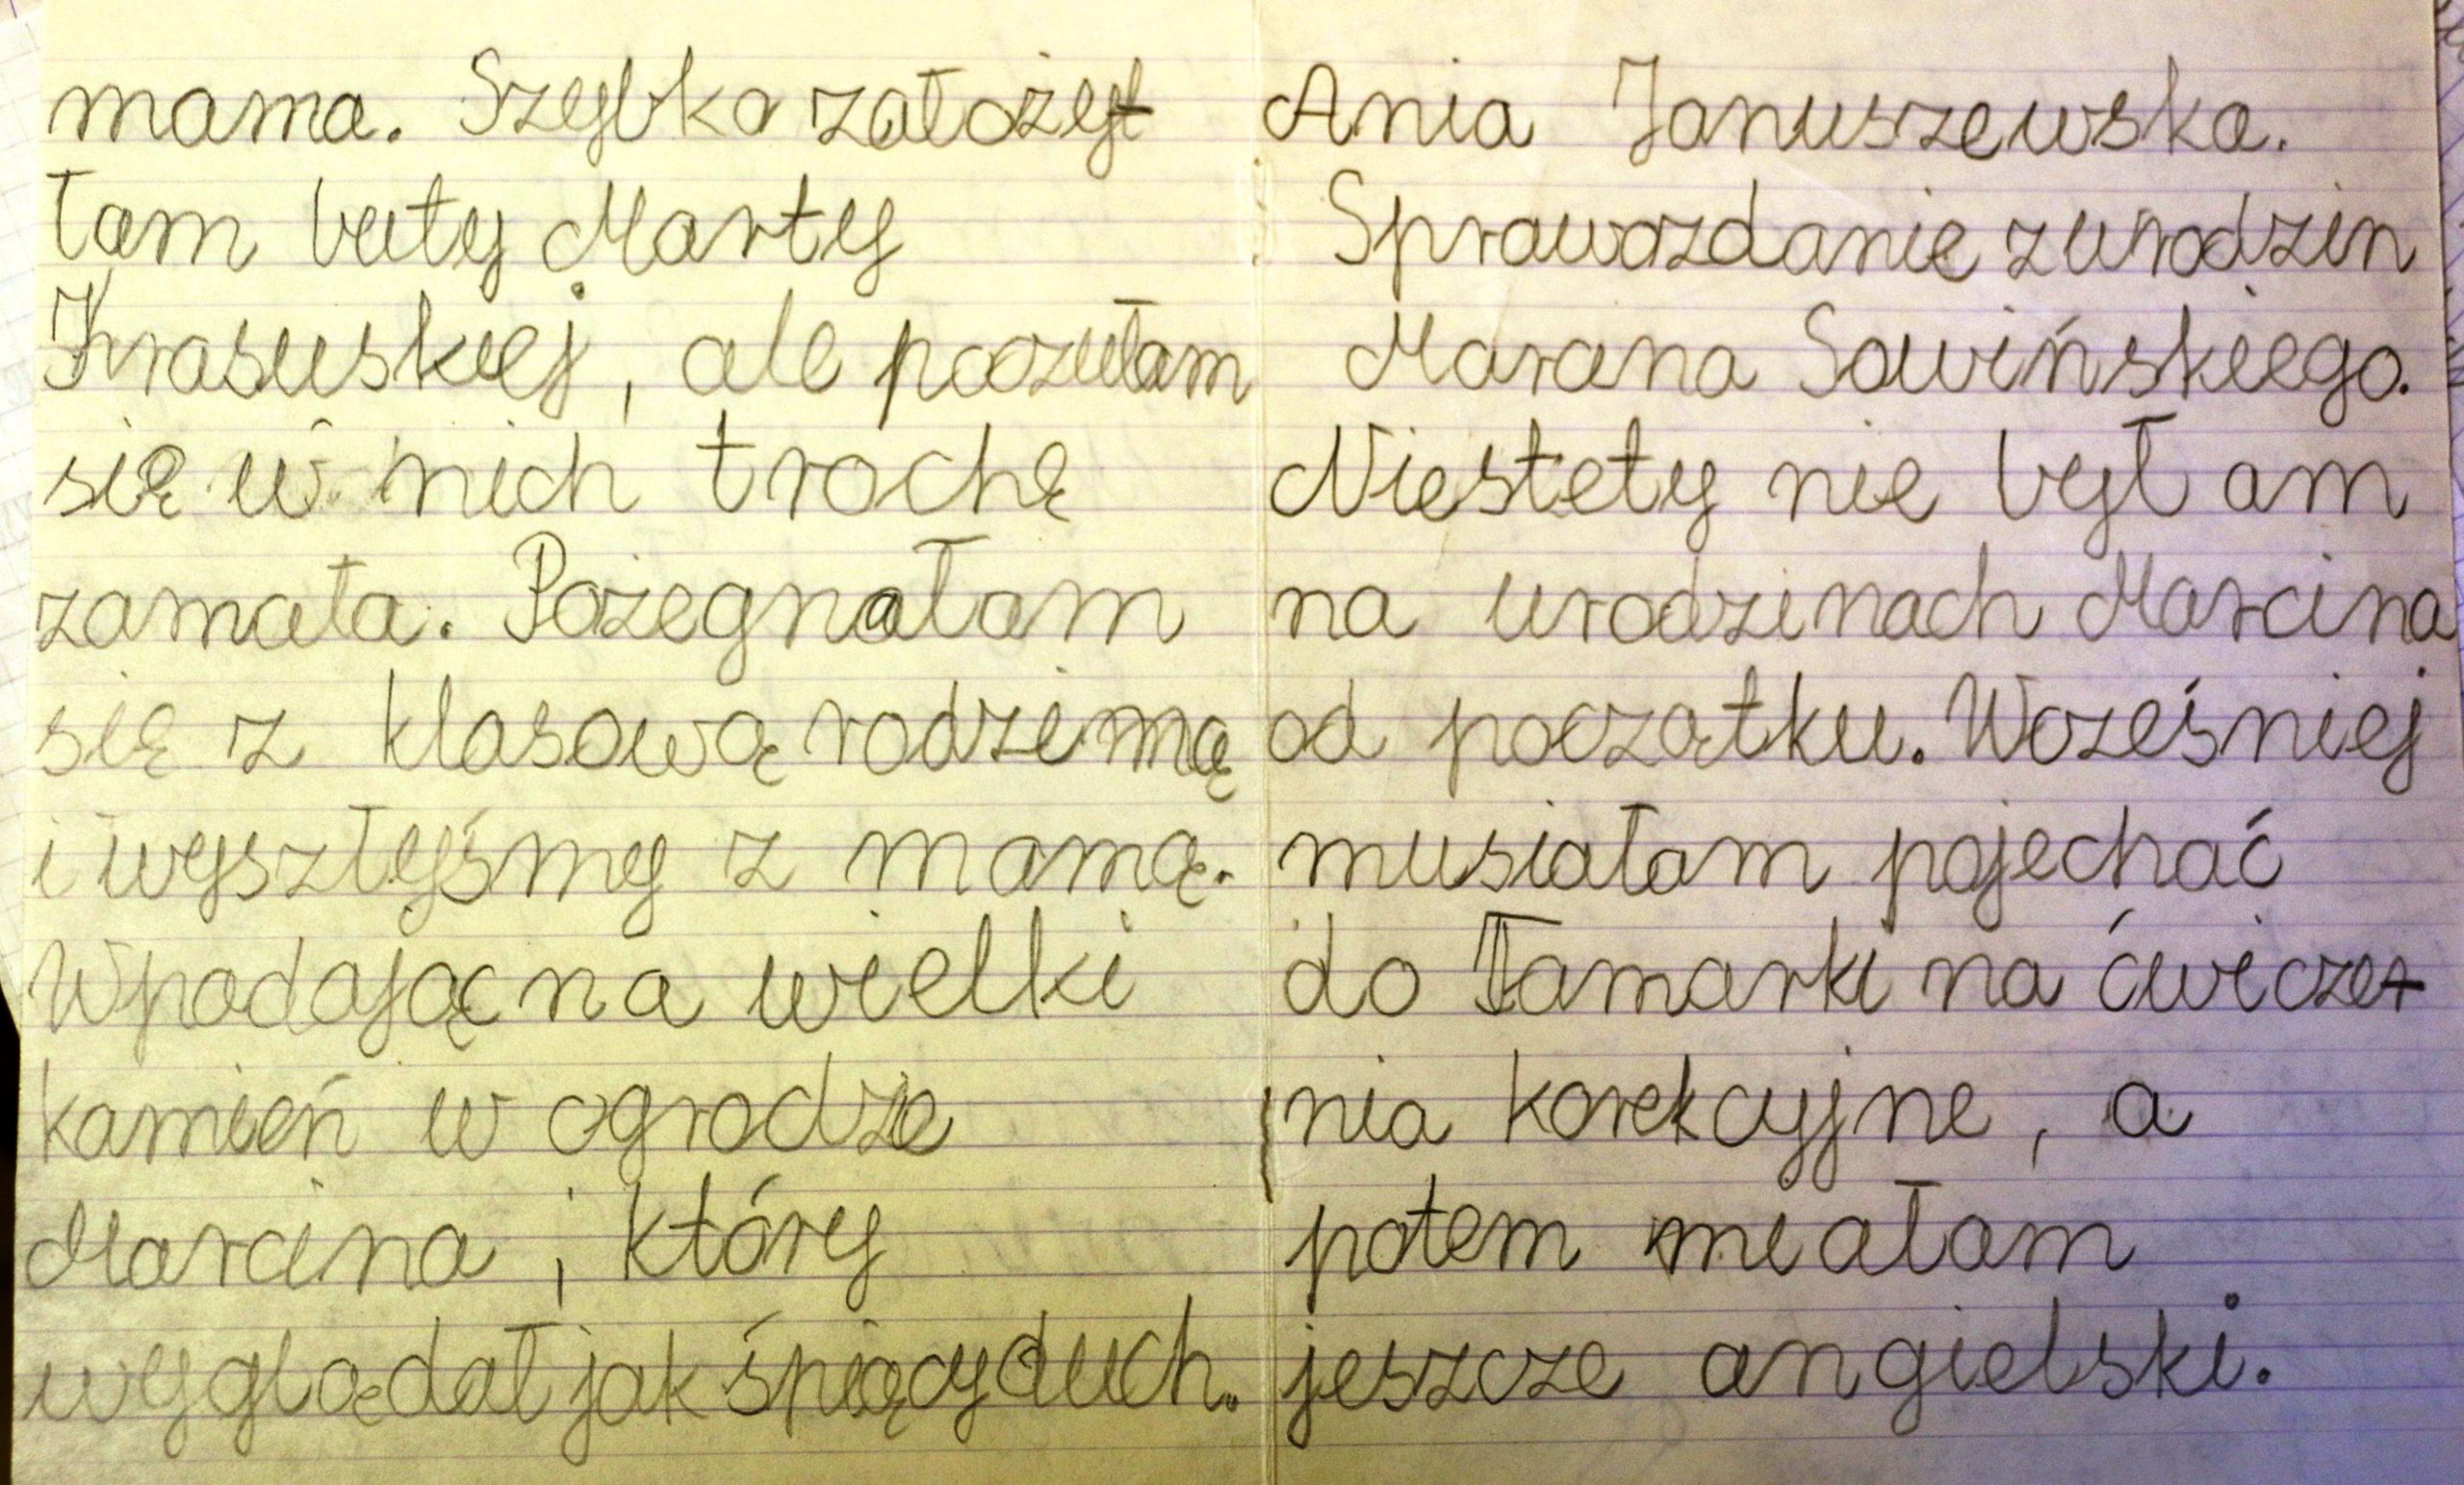 mama. Szybko założył
łam buty Marty
Krasuskiej, ale poczułam
się w nich trochę
zamała. Pożegnałam
się z klasową rodziną
i wyszłyśmy z mamą.
Wpadając na wielki
kamień w ogrodzie
Marcina, który
wyglądał jak śpiący duch.
Ania Januszewska.
Sprawozdanie z urodzin
Marcina Sawińskiego.
Niestety nie był am
na urodzinach Marcina
od początku. Wcześniej
musiałam pojechać
do Tamarki na ćwicze-
nia korekcyjne, a
potem miałam
jeszcze angielski.